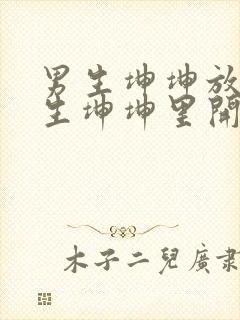 男生坤坤放
生坤坤里開
木子二兒廣肅